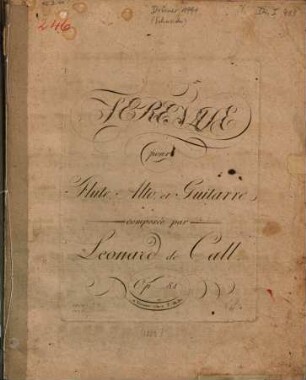 246
SERENADE
pour
Flute Alto et Guitarre
composée par
Leonard de Call
Op. 85